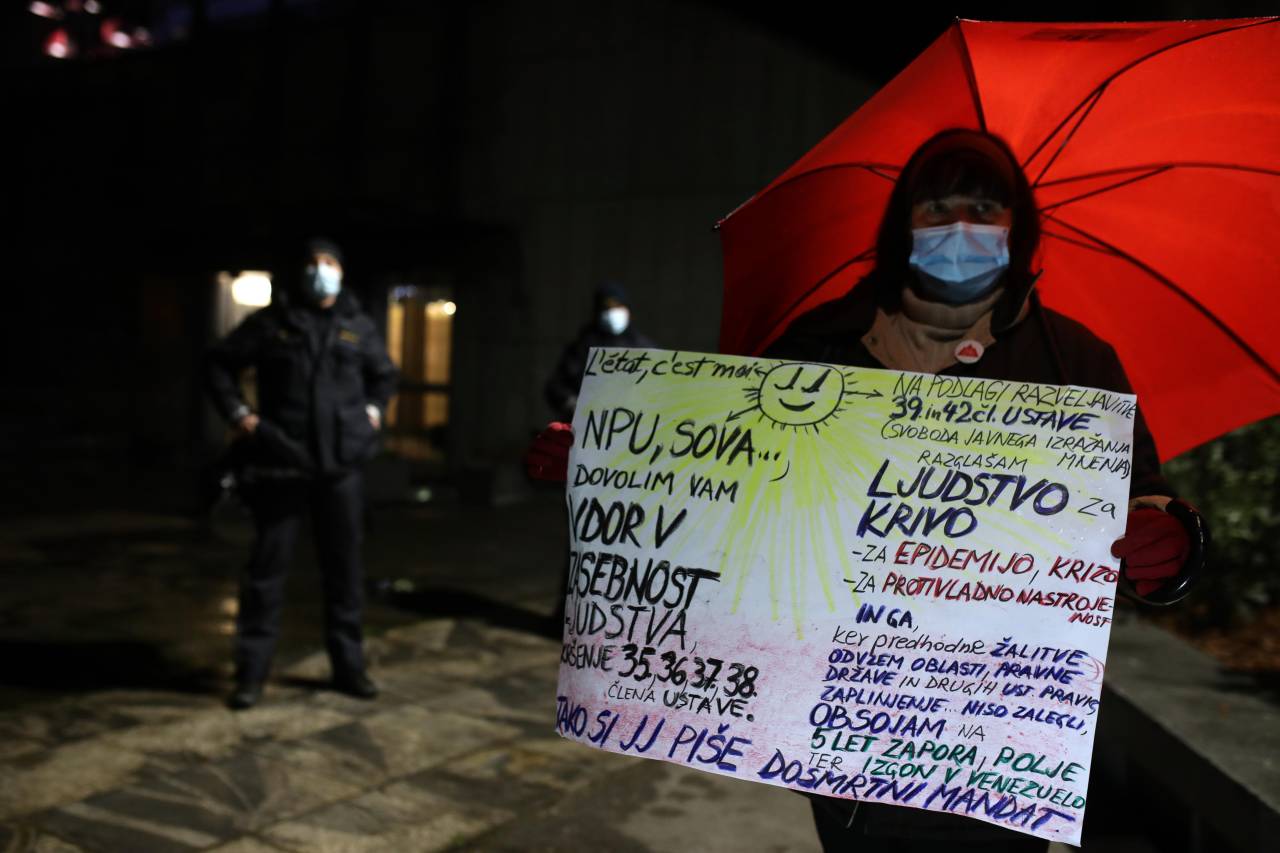 L'état, c'est moi
NPU, SOVA...,
DOVOLIM VAM
VDOR V
ZASEBNOST
LJUDSTVA,
KRŠENJE 35, 36, 37, 38.
ČLENA USTAVE.
NA PODLAGI RAZVELJAVITVE
39. in 42 čl. USTAVE
(SVOBODA JAVNEGA IZRAŽANJA
MNENJA)
RAZGLAŠAM
LJUDSTVO za
KRIVO
-ZA EPIDEMIJO, KRIZO
-ZA PROTIVLADNO NASTROJE-
NOST
IN GA,
ker predhodne ŽALITVE
ODVZEM OBLASTI, PRAVNE
DRŽAVE IN DRUGIH UST. PRAVIC,
ZAPLINJENJE... NISO ZALEGLI,
OBSOJAM NA
5 LET ZAPORA, POLJE
TER IZGON V VENEZUELO
TAKO SI JJ PIŠE DOSMRTNI MANDAT.